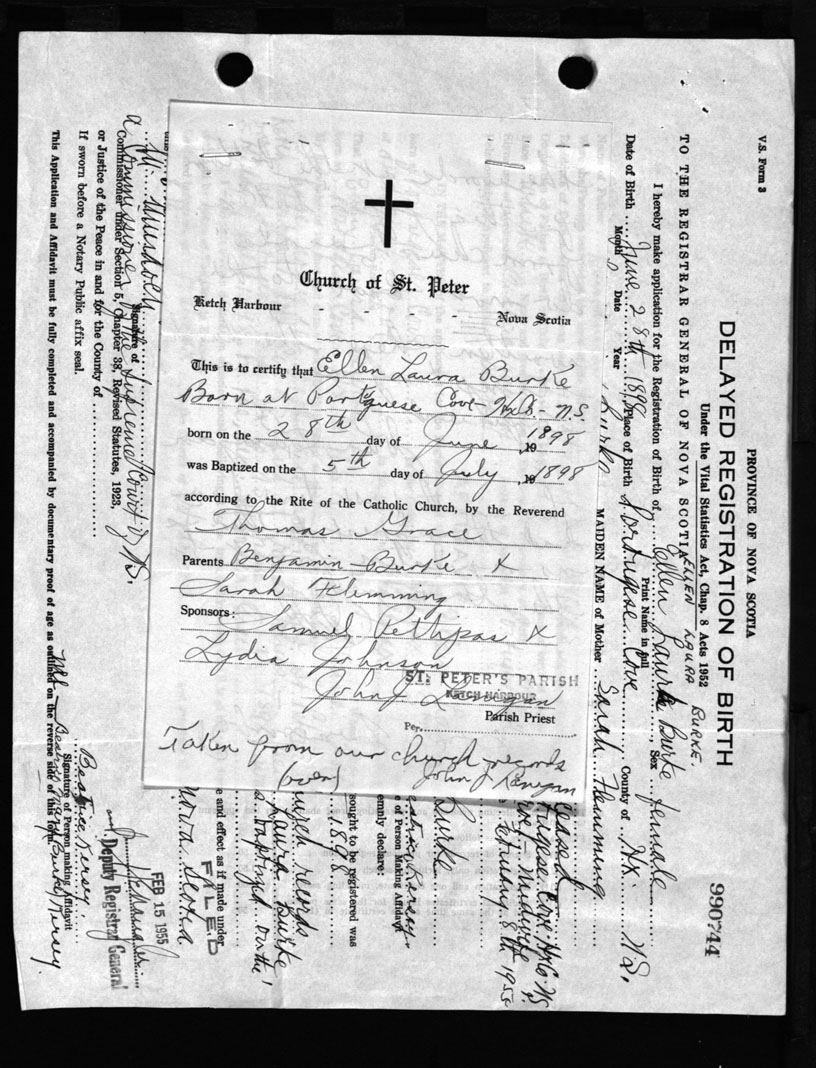 Church of St. Peter
Ketch Harbour - - - - Nova Scotia
This is to certify that Ellen Laura Burke
Born at Portuguese Cove - Hx Co - N.S.
born on the 28th day of June 19 1898
was Baptized on the 5th day of July 19 1898
according to the Rite of the Catholic Church, by the Reverend
Thomas Grace
Parents Benjamin Burke x
Sarah Flemming
Sponsors: Samuel Pettipas x
Lydia Johnson
ST. PETER'S PARISH
KETCH HARBOUR
John J
Parish Priest
Per.
Taken from our church records
(over) John J
V.S. Form 3
PROVINCE OF NOVA SCOTIA
DELAYED REGISTRATION OF BIRTH
Under the Vital Statistics Act, Chap. 8 Acts 1952
990744
ELLEN LAURA BURKE.
TO THE REGISTRAR GENERAL OF NOVA SCOTIA
I hereby make application for the Registration of Birth of Ellen Laura Burke, Sex female
Print Name in full
Date of Birth June 28th 1898 Place of Birth Portugese Cove County of Hx. N.S.
Month Date Year
Burke MAIDEN NAME of Mother Sarah Flemming
ceased
tugese Cove Hx Co NS
not midwife
8th 1955
Burke
Beatrice Kersey
e of Person Making Affidavit
emnly declare:
sought to be registered was
1898
church records
Laura Burke
baptized on the
e and effect as if made under
FILED
Nova Scotia
Murdoch
Signature of
a Commissioner of the Supreme Court of NS.
Commissioner under Section 5, Chapter 38, Revised Statutes, 1923,
or Justice of the Peace in and for the County of
If sworn before a Notary Public affix seal.
FEB 15 1955
Deputy Registrar General
Beatrice Kersey
Signature of Person making Affidavit
This Application and Affidavit must be fully completed and accompanied by documentary proof of age as outlined on the reverse side of this form.
Burke Kersey